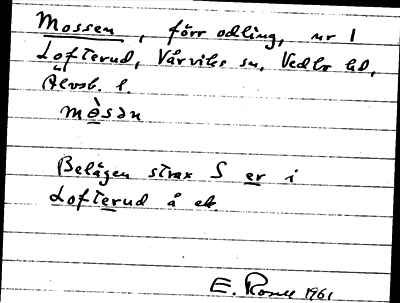 Mossen, förr odling, nr 1
Lofterud, Vårviks sn, Vedbo hd,
Älvsb. l.
mòsən
Belägen strax S er i
Lofterud å ek.
E. 1961